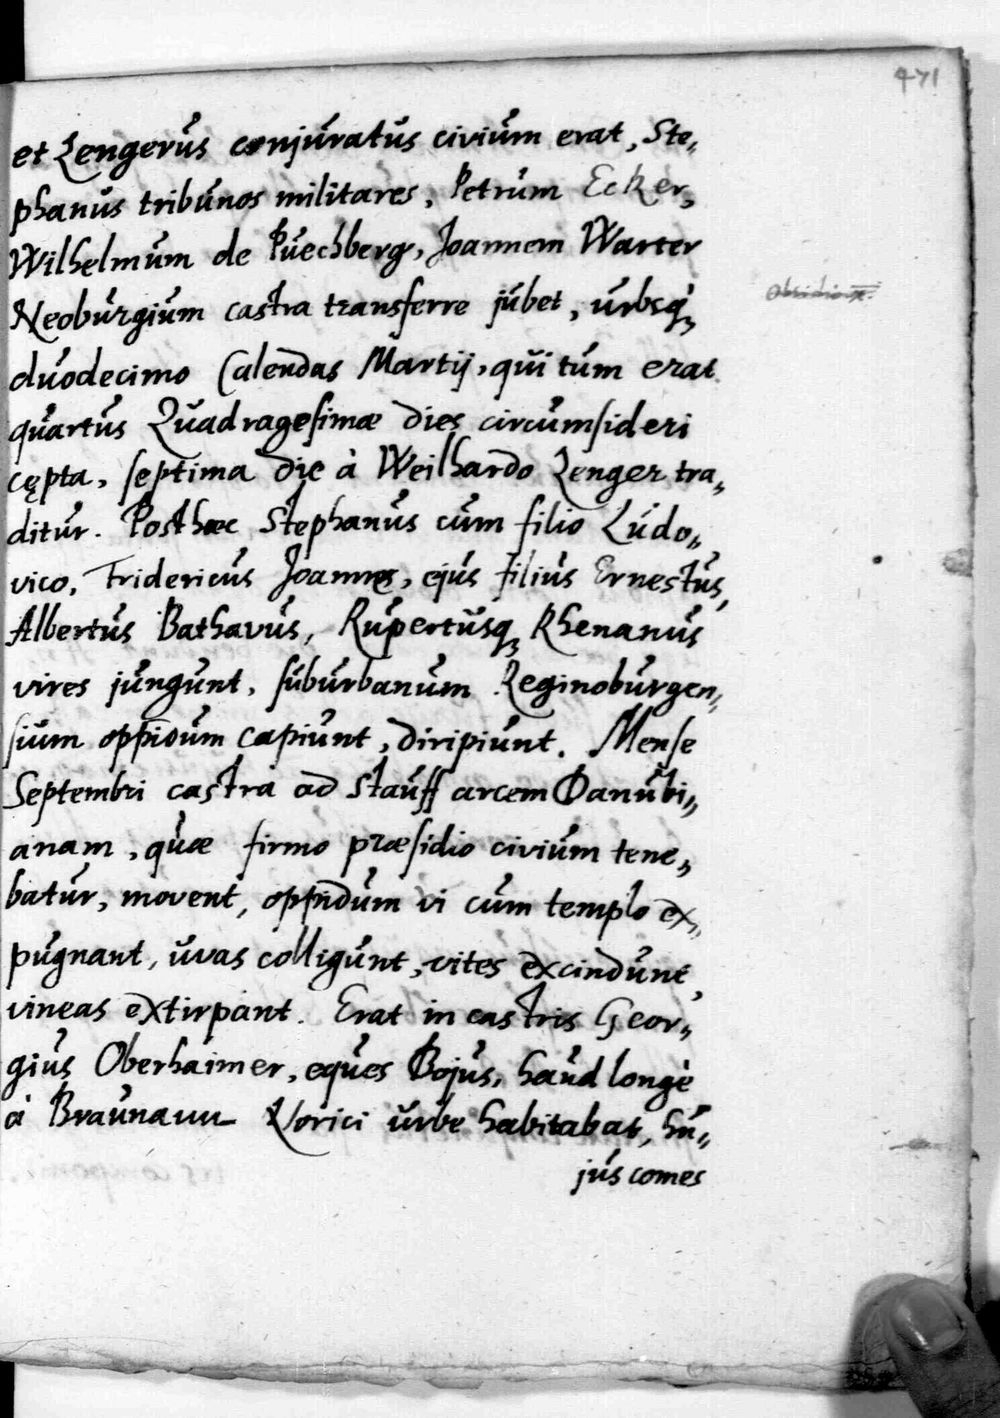 471
et Lengerus conjuratus civium erat, Ste„
phanus tribunos militares, Petrum Ecker,
Wilhelmum de Puechberg, Joannem Warter
Neoburgium castra transferre jubet, urbsq;
duodecimo Calendas Martij, qui tum erat
quartus Quadragesimæ dies circumsideri
cępta, septima die à Weilhardo Zenger tra„
ditur. Posthæc Stephanus cum filio Ludo„
vico, Fridericus Joannes, ejus filius Ernestus,
Albertus Bathavus, Rupertusq; Rhenanus
vires jungunt, suburbanum Reginoburgen„
sium oppidum capiunt, diripiunt. Mense
Septembri castra ad Stauff arcem Danubi„
anam, quæ firmo præsidio civium tene„
batur, movent, oppidum vi cum templo ex„
pugnant, uvas colligunt, vites excindunt,
vineas extirpant. Erat in castris Geor„
gius Oberhaimer, eques Bojus, haud longè
à Braunaw Norici urbe habitabat, hu„
jus comes